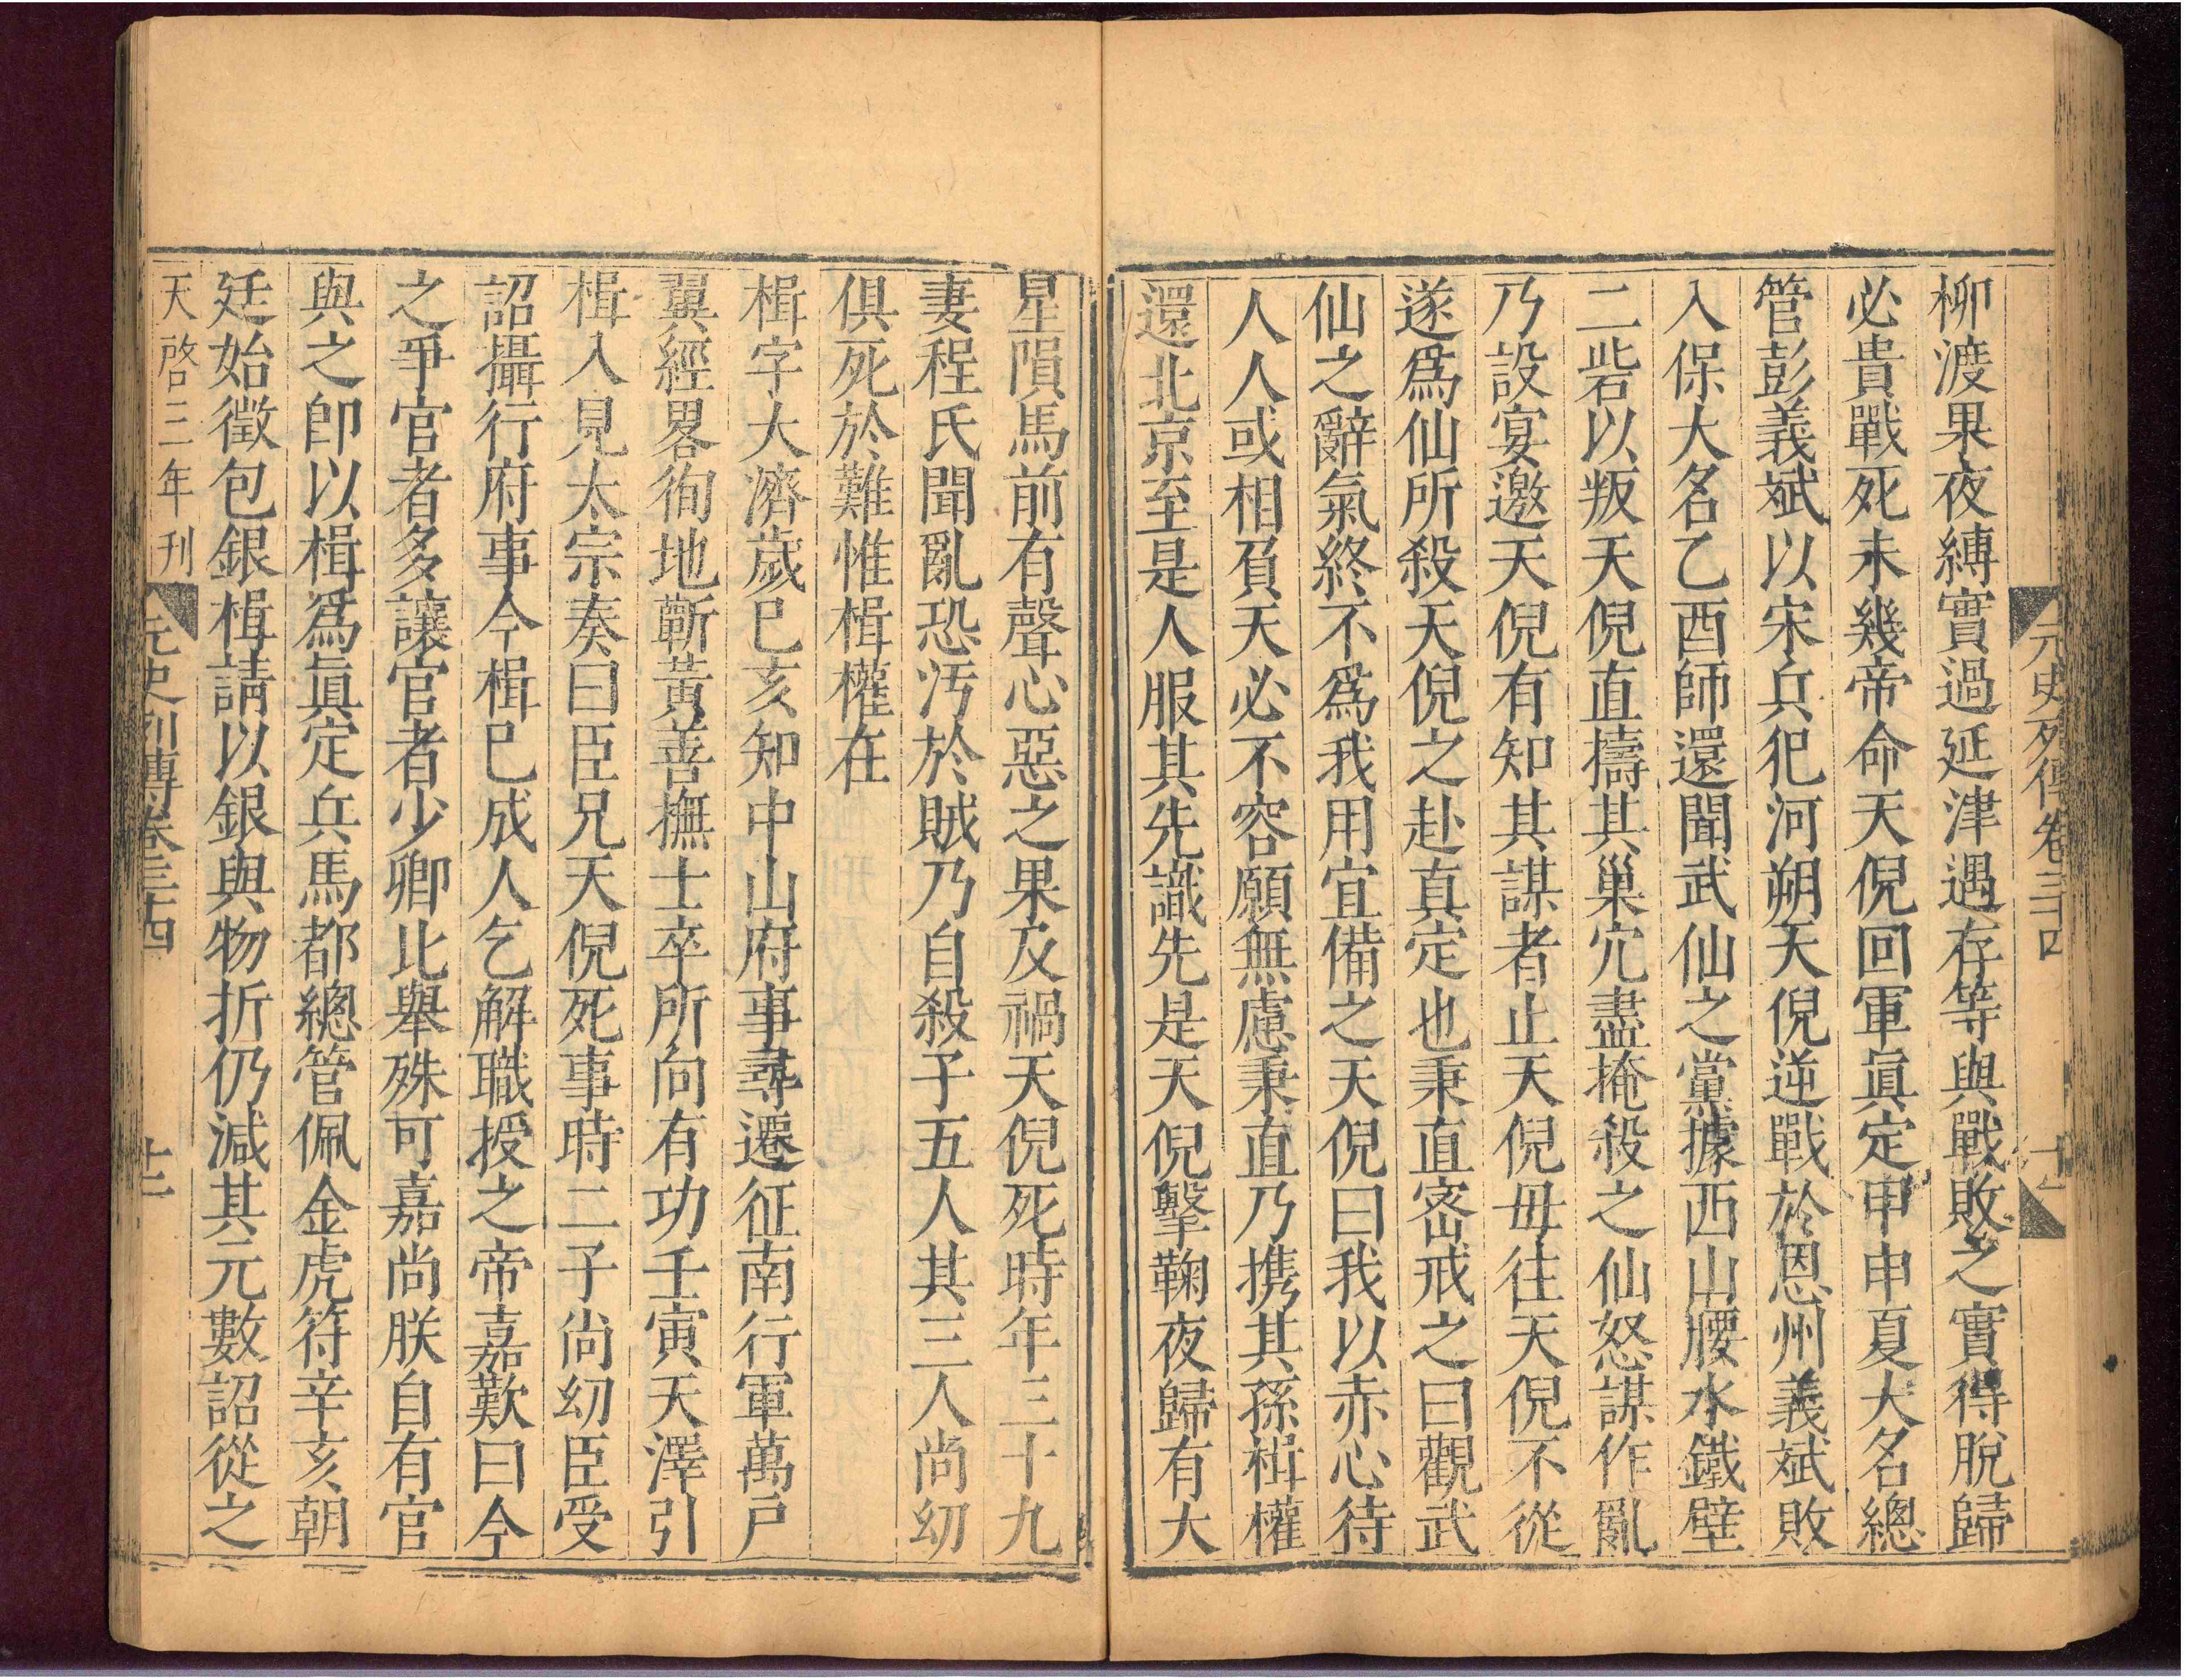 元史列傳卷三十四
柳渡果夜縛實過延津遇存等與戰敗之實得脫歸
必貴戰死未幾帝命天倪回軍眞定甲申夏大名總
管彭義斌以宋兵犯河朔天倪逆戰於恩州義斌敗
入保大名乙酉師還聞武仙之黨據西山腰水鐵壁
二砦以叛天倪直擣其巢穴盡掩殺之仙怒謀作亂
乃設宴邀天倪有知其謀者止天倪毋往天倪不從
遂爲仙所殺天倪之赴真定也秉直密戒之曰觀武
仙之辭氣終不爲我用宜備之天倪曰我以赤心待
人人或相負天必不容願無慮秉直乃携其孫楫權
還北京至是人服其先識先是天倪擊鞠夜歸有大
星隕馬前有聲心惡之果及禍天倪死時年三十九
妻程氏聞亂恐汚於賊乃自殺子五人其三人尚幼
俱死於難惟楫權在
楫字大濟歲巳亥知中山府事尋遷征南行軍萬戶
翼經畧徇地蘄黃善撫士卒所向有功壬寅天澤引
楫入見太宗奏曰臣兄天倪死事時二子尚幼臣受
詔攝行府事今楫巳成人乞解職授之帝嘉歎曰今
之爭官者多讓官者少卿此舉殊可嘉尚朕自有官
與之卽以楫爲眞定兵馬都總管佩金虎符辛亥朝
廷始徵包銀楫請以銀與物折仍減其元數詔從之
天啓三年刊
元史列傳卷三十四
十二